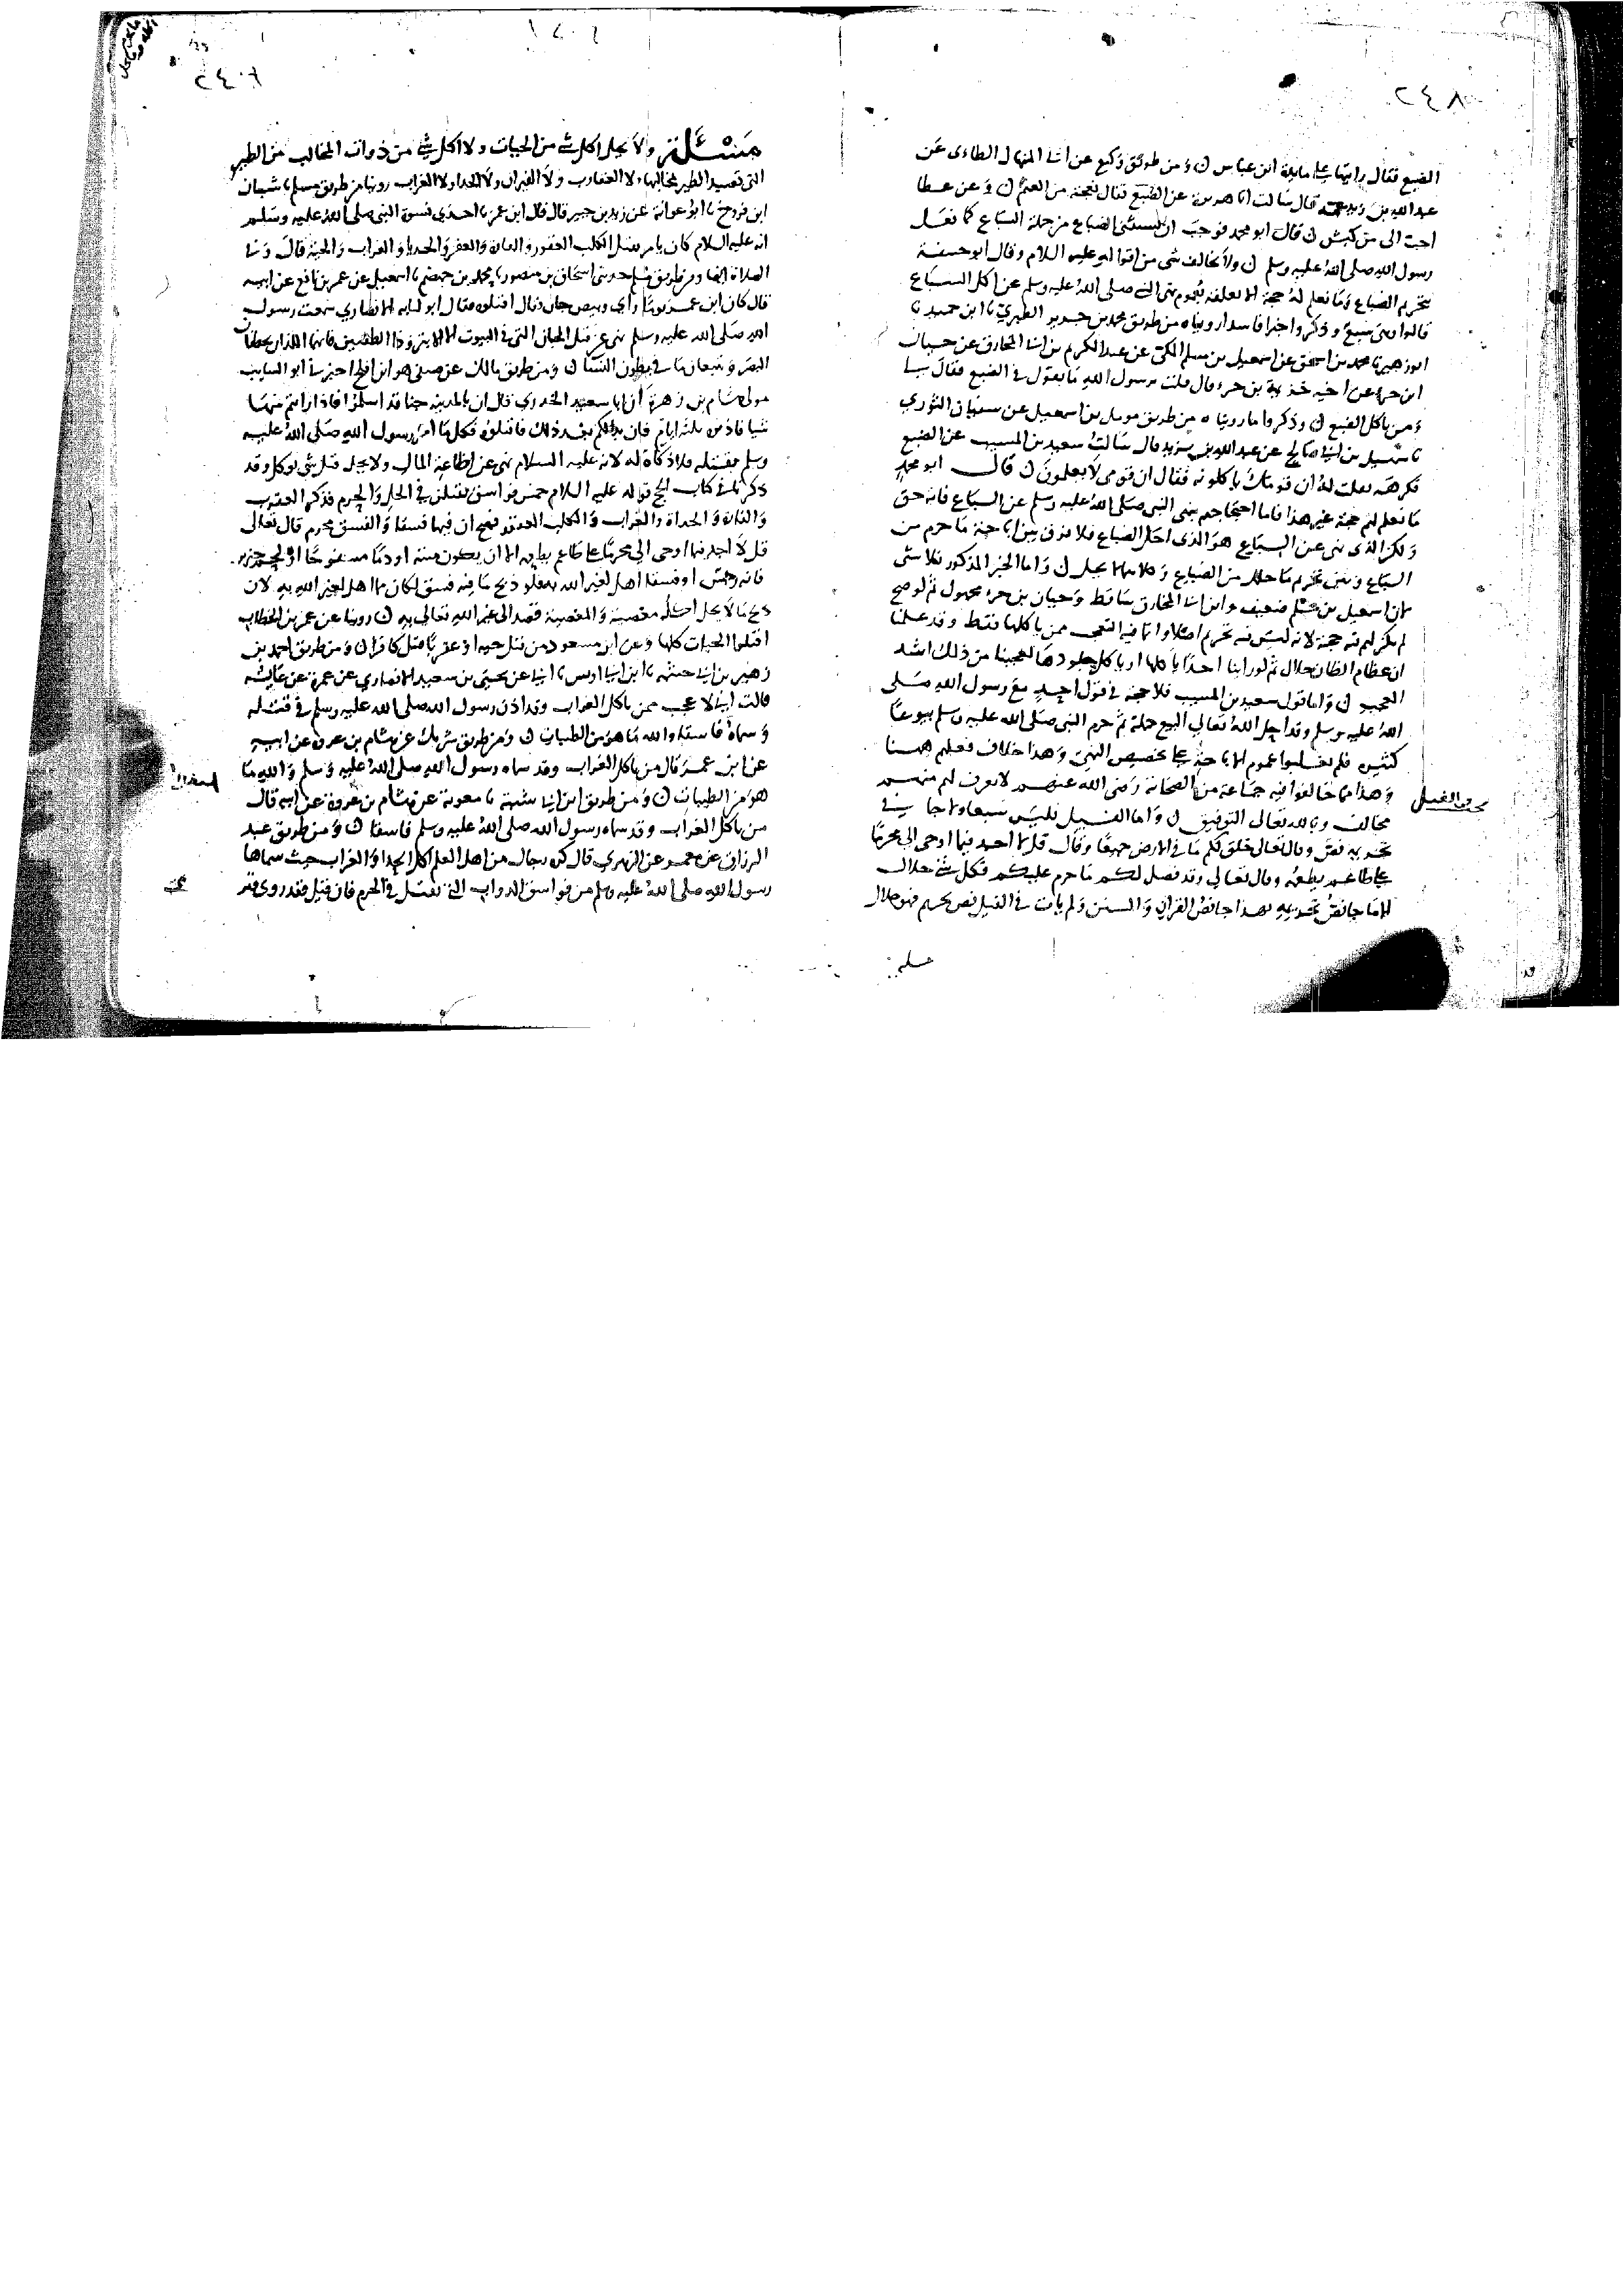 ٢٤٨
الضبع فقال رايتها على مايدة ابن عباس ن ومن طريق وكيع عن ابى المنهال الطاءى عن
عبد الله بن زيد قال سالت ابا هريرة عن الضبع فقال نعجة من الغنم ن وعن عطا
احب الى من كبش ن قال ابو محمد فوجب ان يستثنى الضباع من جملة السباع كما فعل
رسول الله صلى الله عليه وسلم ن ولا يخالف شى من اقواله عليه السلام وقال ابو حنيفة
بتحريم الضباع وما نعلم له حجة الا تعلقه بعموم نهى النبى صلى الله عليه وسلم عن اكل السباع
قالوا وهى سبع وذكروا خبرا فاسدا رويناه من طريق محمد بن جرير الطبري نا ابن حميد نا
ابو زهير نا محمد بن اسحق عن اسمعيل بن مسلم المكى عن عبد الكريم بن ابى المخارق عن حبان
ابن جزء عن اخيه خزيمة بن جزء قال قلت يرسول الله ما تقول فى الضبع فقال
ومن ياكل الضبع ن وذكروا ما رويناه من طريق مومل بن اسمعيل عن سفيان الثوري
نا سهيل بن ابى صالح عن عبد الله بن يزيد قال سالت سعيد بن المسيب عن الضبع
فكرهه فقلت له ان قومك ياكلونه فقال ان قومى لا يعلمون ن قال ابو محمد
ما نعلم لهم حجة غير هذا فاما احتجاجهم بنهى النبى صلى الله عليه وسلم عن السباع فانه حق
ولكن الذى نهى عن السباع هو الذى احل الضباع فلا فرق بين اباحة ما حرم من
السباع وبين تحريم ما حلل من الضباع وكلاهما لا يحل ن واما الخبر المذكور فلا شى
لان اسمعيل بن مسلم ضعيف وابن ابى المخارق ساقط وحبان بن جزء مجهول ثم لو صح
لم يكن لهم فيه حجة لانه ليس فيه تحريم اصلا وانما فيه التعجب ممن ياكلها فقط وقد علمنا
ان عظام الضان حلال ثم لو راينا احدا ياكلها او ياكل جلودها لعجبنا من ذلك اشد
العجب ن واما قول سعيد بن المسيب فلا حجة فى قول احد مع رسول الله صلى
الله عليه وسلم وقد احل الله تعالى البيع جملة ثم حرم النبى صلى الله عليه وسلم بيوعا
كثيره فلم يغلبوا عموم الاباحة على تخصيص النهى وهذا خلاف فعلهم هنا
وهذا مما خالفوا فيه جماعة من الصحابة رضى الله عنهم لا يعرف لهم منهم
مخالف وبالله تعالى التوفيق ن واما الفيل فليس سبعا ولا جا فى
تحريمه نص وقال تعالى خلق لكم ما فى الارض جميعا وقال قل لا اجد فيما اوحى الى محرما
على طاعم يطعمه وقال تعالى وقد فصل لكم ما حرم عليكم فكل شى حلال
الا ما جا نص بتحريمه بهذا جا نص القران والسنن ولم يات فى الفيل نص تحريم فهو حلال
مسئلة ولا يحل اكل شى من الحيات ولا اكل شى من ذوات المخالب من الطير وهى
التى تصيد الطير بمخالبها ولا العقارب ولا الفيران ولا الحدا ولا الغراب روينا من طريق مسلم نا شيبان
ابن فروخ نا ابو عوانة عن زيد بن جبير قال قال ابن عمر نا احدى نسوة النبى صلى الله عليه وسلم
انه عليه السلام كان يامر بقتل الكلب العقور والفارة والعقرب والحديا والغراب والحية قال وفى
الصلاة ايضا ومن طريق مسلم حدثنى اسحاق بن منصور نا محمد بن جهضم نا اسمعيل عن عمر بن نافع عن ابيه
قال كان ابن عمر يوما راى وبيص جان فقال اقتلوه فقال ابو لبابه الانصاري سمعت رسول
الله صلى الله عليه وسلم نهى عن قتل الجنان التى فى البيوت الا الابتر وذا الطفيتين فانهما اللذان يخطفان
البصر ويتبعان ما فى بطون النسا ن ومن طريق مالك عن صيفى هو ابن افلح اخبرنى ابو السايب
مولى هشام بن زهرة ان ابا سعيد الخدري قال ان بالمدينه جنا قد اسلموا فاذا رايتم منهما
شيا فاذنوه ثلثة ايام فان بدا لكم بعد ذلك فاقتلوه فكل ما امر رسول الله صلى الله عليه
وسلم بقتله فلا ذكاة له لانه عليه السلام نهى عن اضاعة المال ولا يحل قتل شى يوكل وقد
ذكرنا فى كتاب الحج قوله عليه السلام خمس فواسق يقتلن فى الحل والحرم فذكر العقرب
والفارة والحداة والغراب والكلب العقور فصح ان فيها فسقا والفسق محرم قال تعالى
قل لا اجد فيما اوحى الى محرما على طاعم يطعمه الا ان يكون ميتة او دما مسفوحا او لحم خنزير
فانه رجس او فسقا اهل لغير الله به فلو ذبح ما فيه فسق لكان مما اهل لغير الله به لان
ذبح ما لا يحل اكله معصية والمعصية قصد الى غير الله تعالى به ن روينا عن عمر بن الخطاب
اقتلوا الحيات كلها وعن ابن مسعود من قتل حيه او عقربا قتل كافرا ن ومن طريق احمد بن
زهير بن ابى خيثمه نا ابن ابى اويس نا ابى عن يحيى بن سعيد الانصاري عن عمرة عن عايشه
قالت انى لاعجب ممن ياكل الغراب وقد اذن رسول الله صلى الله عليه وسلم فى قتله
وسماه فاسقا والله ما هو من الطيبات ن ومن طريق شريك عن هشام بن عروة عن ابيه
عن ابن عمر قال من ياكل الغراب وقد سماه رسول الله صلى الله عليه وسلم والله ما
هو من الطيبات ن ومن طريق ابن ابى شيبة نا معوية عن هشام بن عروة عن ابيه قال
من ياكل الغراب وقد سماه رسول الله صلى الله عليه وسلم فاسقا ن ومن طريق عبد
الرزاق عن معمر عن الزهري قال كره رجال من اهل العلم اكل الحدا والغراب حيث سماها
رسول الله صلى الله عليه وسلم من فواسق الدواب التى تقتل فى الحرم فان قيل فقد روى